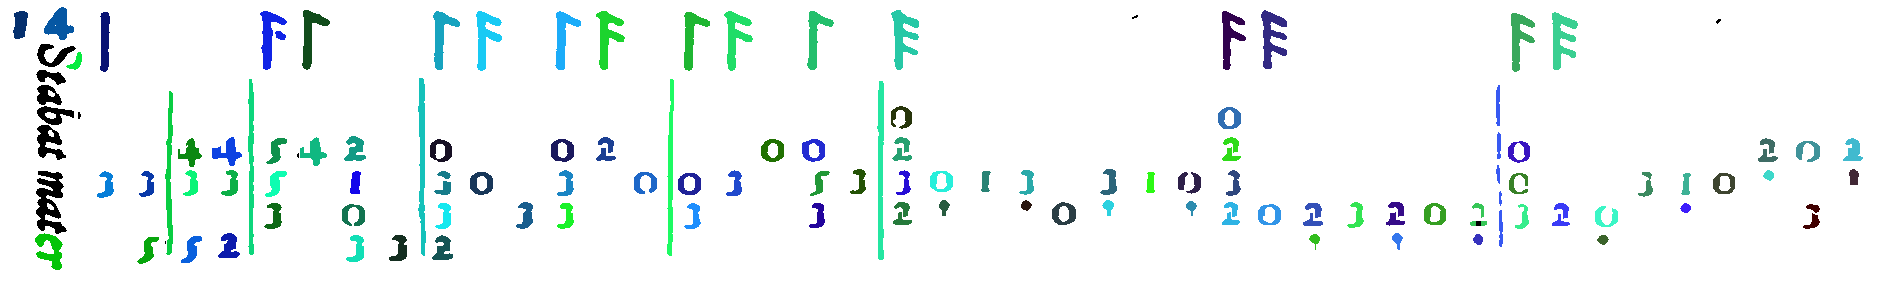 14
Stabat mater
0 0
4 4 5 4 2 0 0 2 0 0 2 2 0 2 0 2
3 3 3 3 5 1 3 0 3 0 0 3 5 3 3 0 1 3 3 1 0 3 0 3 1 0
3 0 3 3 3 3 3 2 0 2 0 2 3 2 0 2 3 2 0 3
5 5 2 3 3 2